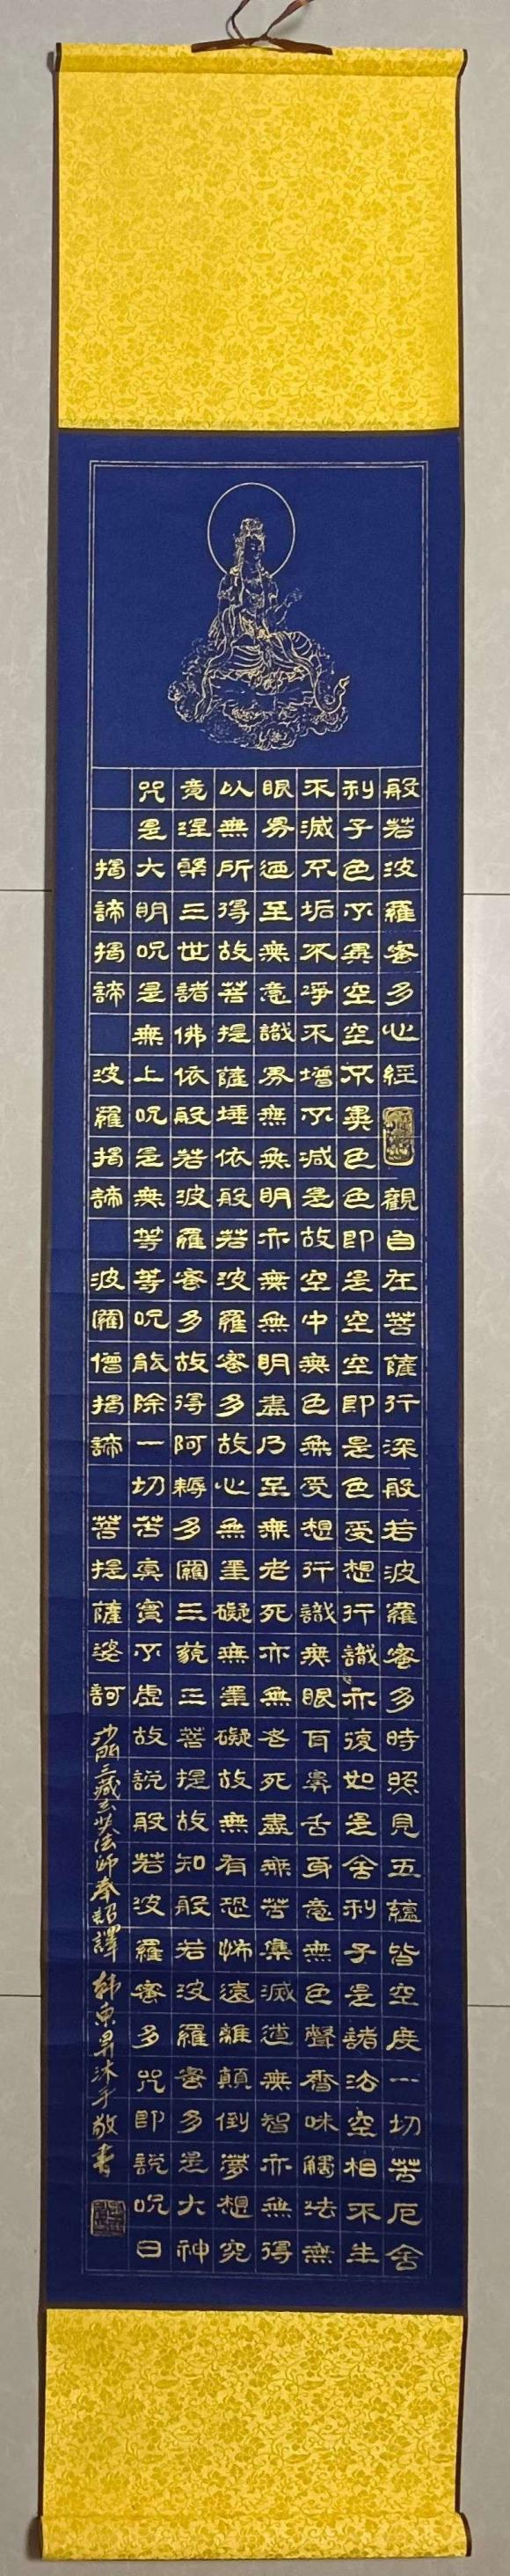 般若波羅蜜多心經 觀自在菩薩行深般若波羅蜜多時照見五蘊皆空度一切苦厄舍
利子色不異空空不異色色即是空空即是色受想行識亦復如是舍利子是諸法空相不生
不滅不垢不淨不增不減是故空中無色無受想行識無眼耳鼻舌身意無色聲香味觸法無
眼界迺至無意識界無無明亦無無明盡乃至無老死亦無老死盡無苦集滅道無智亦無得
以無所得故菩提薩埵依般若波羅蜜多故心無罣礙無罣礙故無有恐怖遠離顛倒夢想究
竟涅槃三世諸佛依般若波羅蜜多故得阿耨多羅三藐三菩提故知般若波羅蜜多是大神
咒是大明呪是無上呪是無等等呪能除一切苦真實不虛故說般若波羅蜜多咒即說呪曰
揭諦揭諦 波羅揭諦 波羅僧揭諦 菩提薩婆訶 沙門三藏玄奘法師奉詔譯 韓東昇沐手敬書